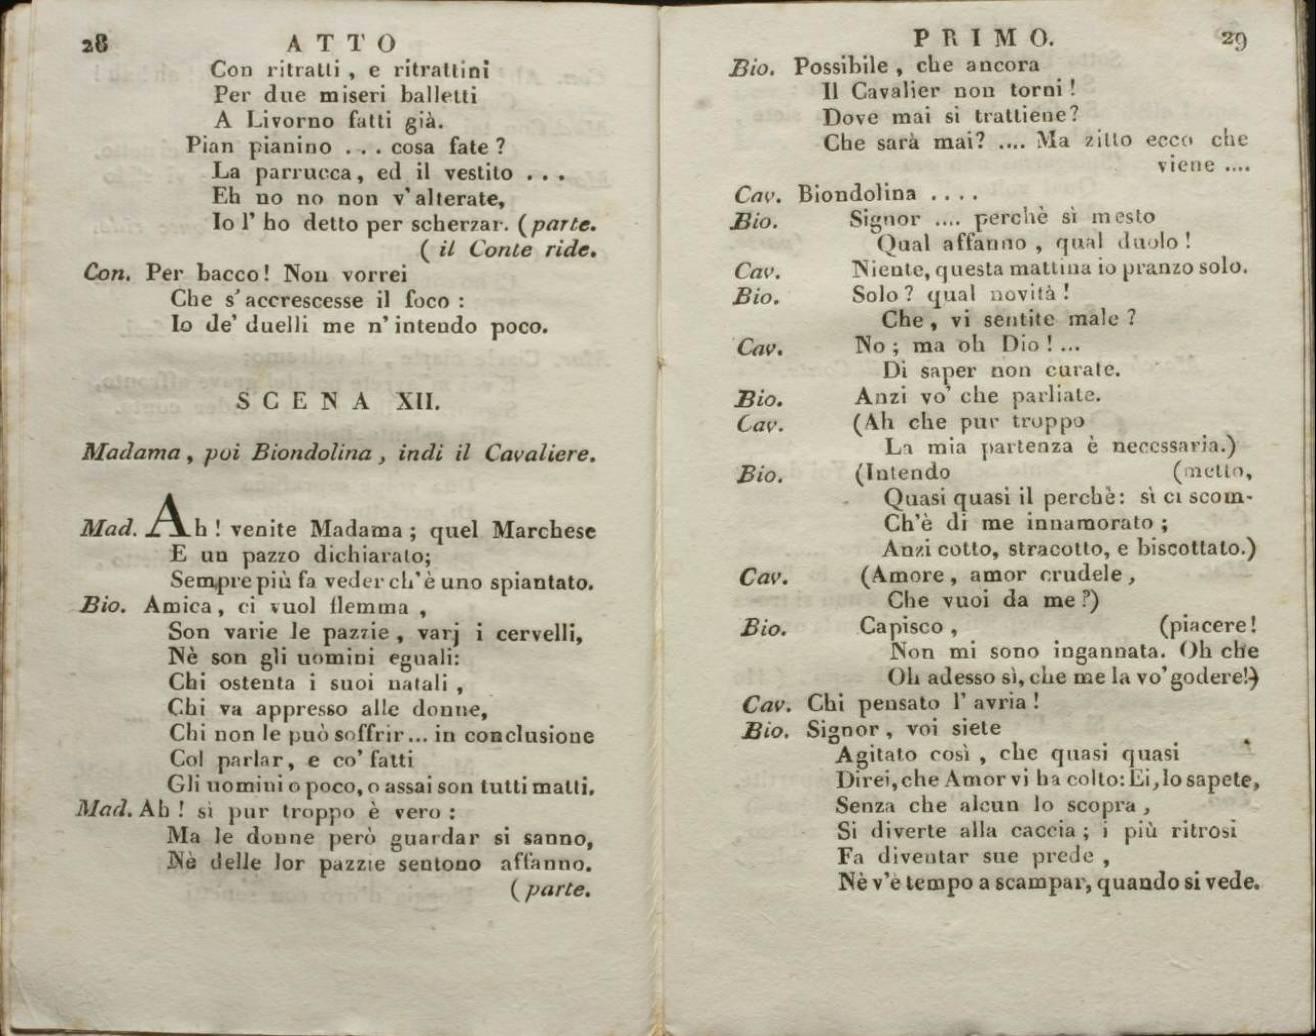 28 ATTO
Con ritratti, e ritrattini
Per due miseri balletti
A Livorno fatti già.
Pian pianino ... cosa fate?
La parrucca, ed il vestito ...
Eh no no non v'alterate,
Io l' ho detto per scherzar. (parte.
( il Conte ride.
Con. Per bacco! Non vorrei
Che s'accrescesse il foco :
Io de' duelli me n'intendo poco.
SCENA XII.
Madama, poi Biondolina, indi il Cavaliere.
Mad. Ah! venite Madama; quel Marchese
E un pazzo dichiarato;
Sempre più fa veder ch'è uno spiantato.
Bio. Amica, ci vuol flemma,
Son varie le pazzie, varj i cervelli,
Nè son gli uomini eguali:
Chi ostenta i suoi natali,
Chi va appresso alle donne,
Chi non le può soffrir... in conclusione
Col parlar, e co' fatti
Gli uomini o poco, o assai son tutti matti.
Mad. Ah! sì pur troppo è vero :
Ma le donne però guardar si sanno,
Nè delle lor pazzie sentono affanno.
(parte.
PRIMO. 29
Bio. Possibile, che ancora
Il Cavalier non torni!
Dove mai si trattiene?
Che sarà mai? .... Ma zitto ecco che
viene ....
Cav. Biondolina ....
Bio. Signor .... perchè sì mesto
Qual affanno, qual duolo!
Cav. Niente, questa mattina io pranzo solo.
Bio. Solo? qual novità!
Che, vi sentite male?
Cav. No; ma oh Dio!...
Di saper non curate.
Bio. Anzi vo' che parliate.
Cav. (Ah che pur troppo
La mia partenza è necessaria.)
Bio. (Intendo (metto,
Quasi quasi il perchè: sì ci scom-
Ch'è di me innamorato;
Anzi cotto, stracotto, e biscottato.)
Cav. (Amore, amor crudele,
Che vuoi da me?)
Bio. Capisco, (piacere!
Non mi sono ingannata. Oh che
Oh adesso sì, che me la vo' godere!)
Cav. Chi pensato l' avria!
Bio. Signor, voi siete
Agitato così, che quasi quasi
Direi, che Amor vi ha colto: Ei, lo sapete,
Senza che alcun lo scopra,
Si diverte alla caccia; i più ritrosi
Fa diventar sue prede,
Nè v'è tempo a scampar, quando si vede.